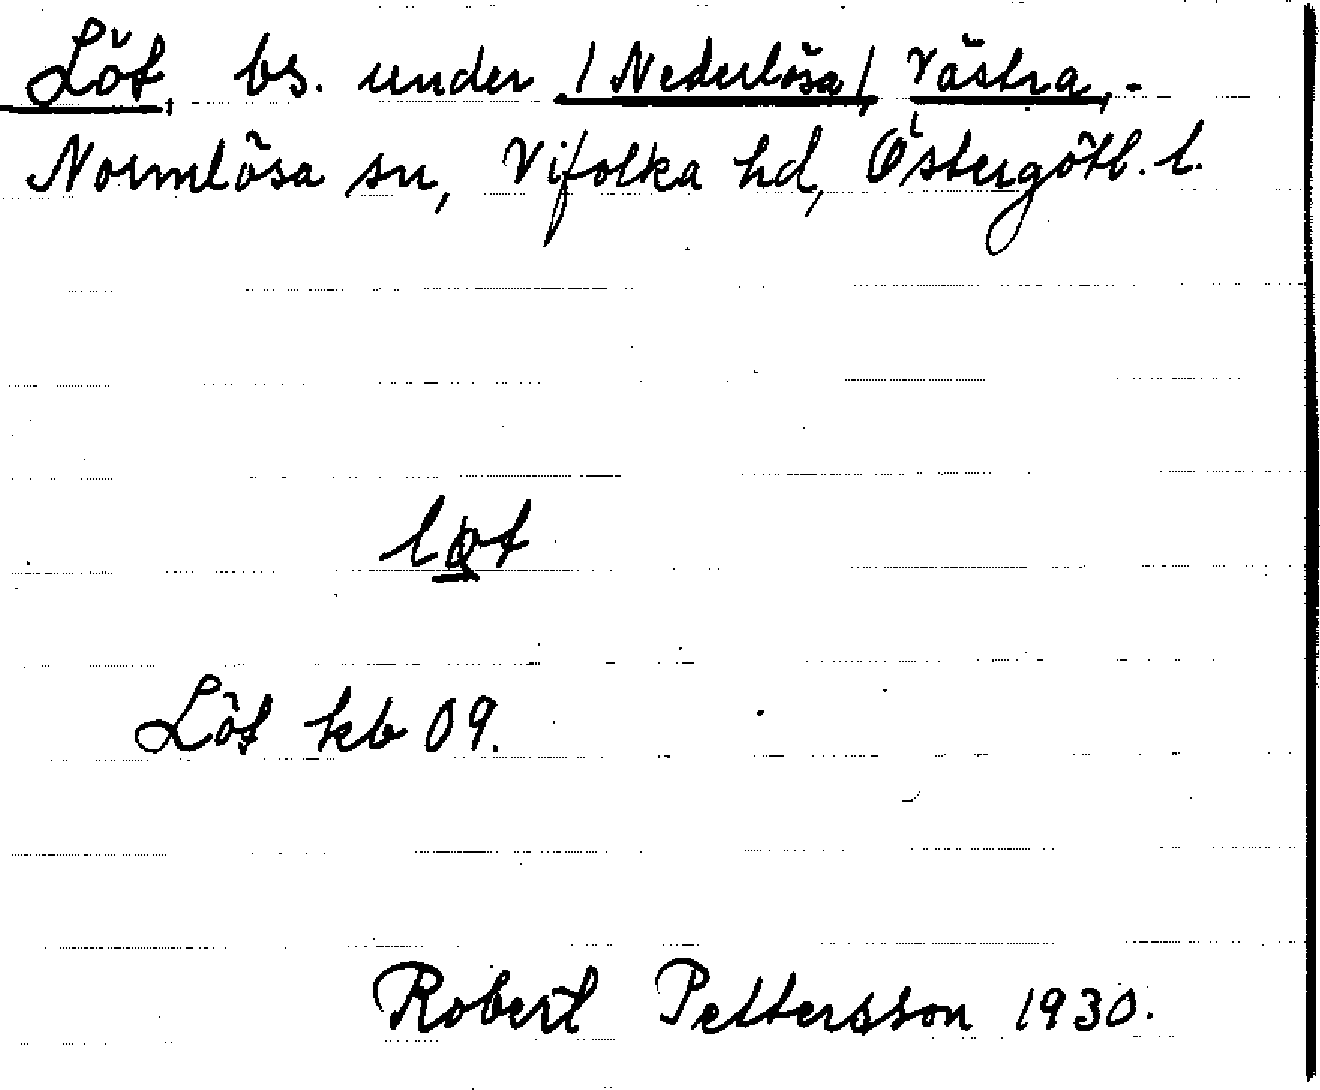 Löt, bs. under /Nederlösa/, Västra,-
Normlösa sn, Vifolka hd, Östergötl. l.
løt
Löt kb 09.
Robert Pettersson 1930.